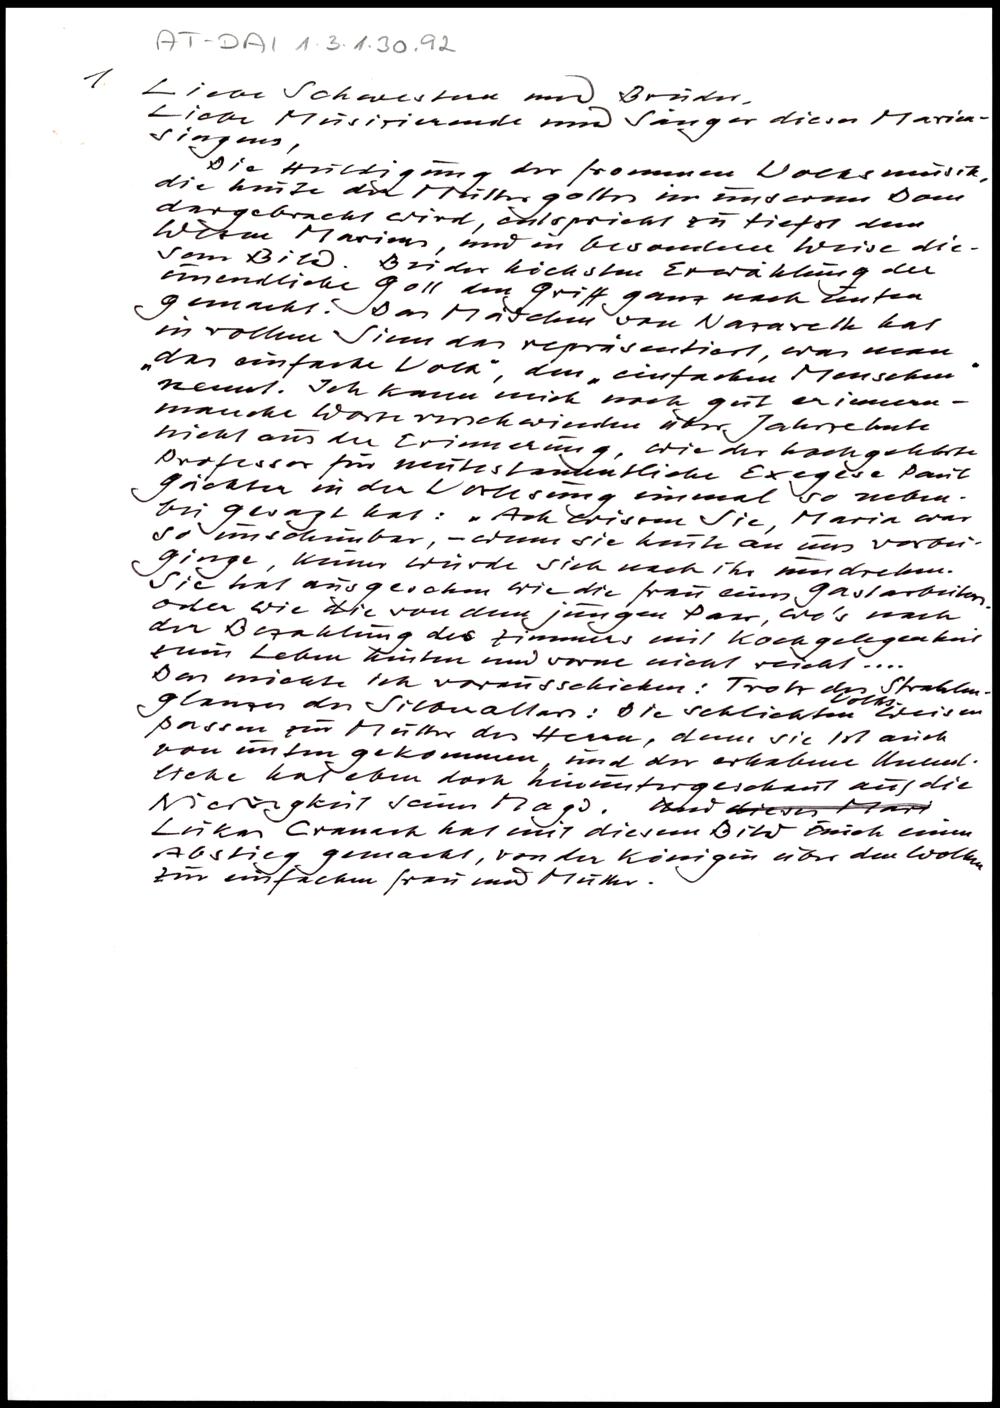 AT-DAI 1.3.1.30.92
1
Liebe Schwestern und Brüder,
Liebe Musizierende und Sänger dieses Marien-
singens,
Die Huldigung der frommen Volksmusik,
die heute der Mutter gottes in unserem Dom
dargebracht wird, entspricht zu tiefst dem
Wesen Mariens, und in besonderer Weise die-
sem Bild. Bei der höchsten Erwählung der
unendliche Gott den Griff ganz nach unten
gemacht. Das Mädchen von Nazareth hat
in vollem Sinn das repräsentiert, was man
„das einfache Volk“, den „einfachen Menschen“
nennt. Ich kann mich noch gut erinnern –
manche Worte verschwinden über Jahrzehnte
nicht aus der Erinnerung, wie der hochgelehrte
Professor für neutestamentliche Exegese Paul
Gächter in der Vorlesung einmal so neben-
bei gesagt hat: „Ach wissen Sie, Maria war
so unscheinbar, – wenn sie heute an uns vorbei-
ginge, keiner würde sich nach ihr umdrehen.
Sie hat ausgesehen wie die Frau eines Gastarbeiters.
oder wie die von dem jungen Paar, wo's nach
der Bezahlung des Zimmers mit Kochgelegenheit
zum Leben hinten und vorne nicht reicht ....
Das möchte ich vorausschicken: Trotz des Strahlen-
glanzes des Silberaltars: Die schlichten Volksweisen
passen zur Mutter des Herrn, denn sie ist auch
von unten gekommen, und der erhabene Unend-
liche hat eben doch hinuntergeschaut auf die
Niedrigkeit seiner Magd. Und dieses Mari
Lukas Cranach hat mit diesem Bild auch einen
Abstieg gemacht, von der Königin über den Wolken
zur einfachen Frau und Mutter.